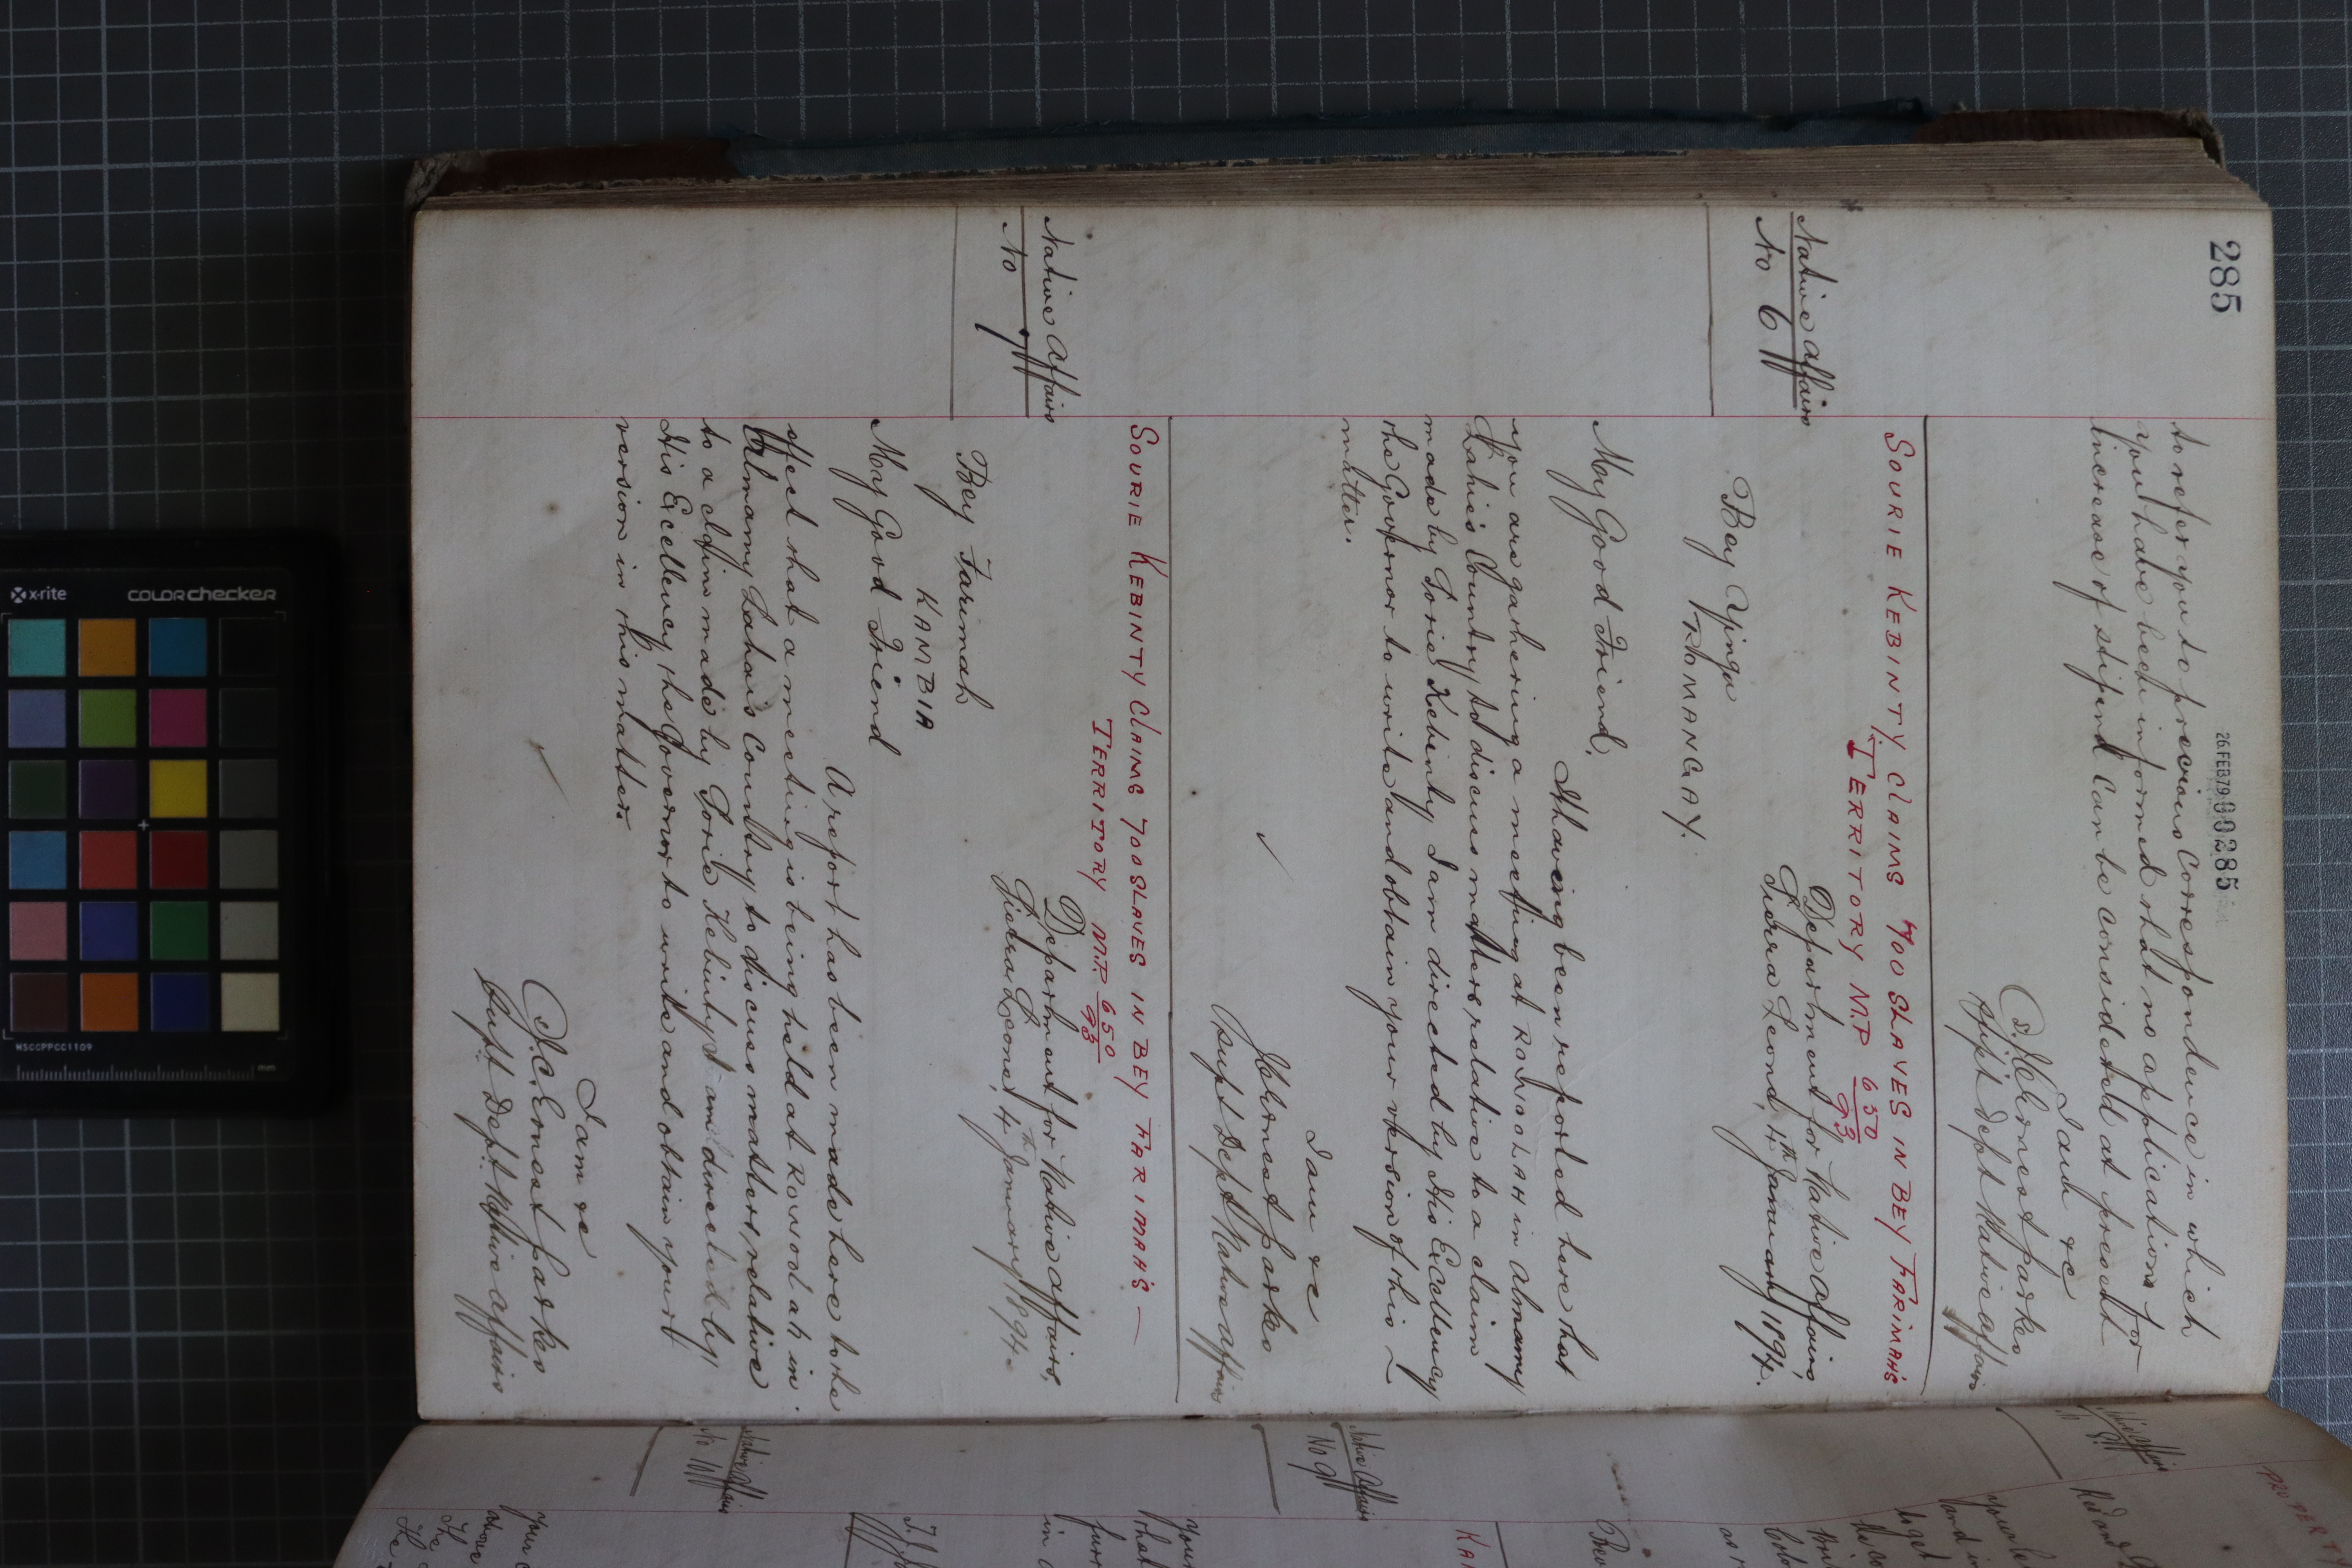 285
26 FEB 79 00285
to refer you to previous Correspondence in which
you have been informed that no applications for
increase of stipend can be considered at present
I am &c
J. C. Ernest Parkes
Supt Dept Native Affairs
SOURIE KEBINTY CLAIMS 700 SLAVES IN BEY FARIMAH'S
TERRITORY M.P. 650/93
Native Affairs
No 6
Department for Native Affairs,
Sierra Leone, 4th January 1894.
Bey Yinga
ROMANGAY.
My Good Friend,
Having been reported here that
you are gathering a meeting at ROWOOLAH in Almamy
Lahai's Country to discuss matters relative to a claim
made by Sorie Kebinty I am directed by His Excellency
the Governor to write and obtain your version of this
matter.
I am &c
J C Ernest Parkes
Supt Dept Native Affairs
SOURIE KEBINTY CLAIMS 700 SLAVES IN BEY FARIMAH'S
TERRITORY M.P. 650/93
Native Affairs
No 7
Department for Native Affairs,
Sierra Leone, 4th January 1894.
Bey Farimah
KAMBIA
My Good Friend
A report has been made here to the
effect that a meeting is being held at ROWOOLAH in
Almamy Lahai's Country to discuss matters relative
to a claim made by Sorie Kebinty I am directed by
His Excellency the Governor to write and obtain your
version in this matter.
I am &c
J. C. Ernest Parkes
Supt Dept Native Affairs
Native Affairs
No 9
Native Affairs
No 10
x-rite
colorchecker
MSCCPPCC1109